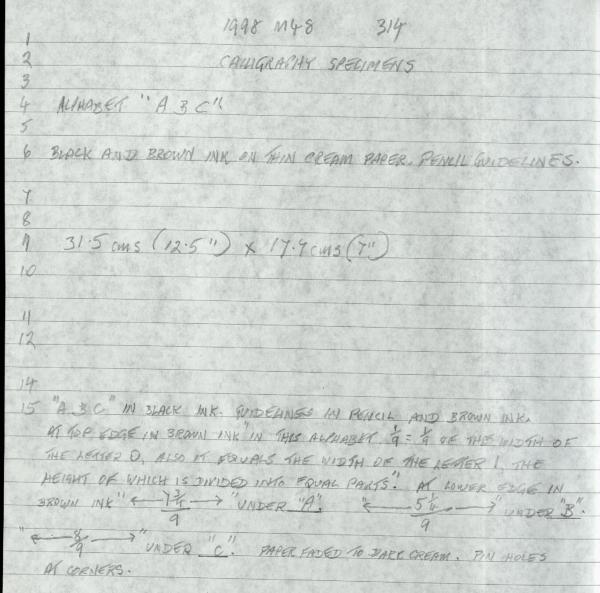 1998 M48 314
1
2 CALLIGRAPHY SPECIMENS
3
4 ALPHABET "A B C"
5
6 BLACK AND BROWN INK ON THIN CREAM PAPER. PENCIL GUIDELINES.
7
8
9 31.5 cms (12.5") x 17.9 cms (7")
10
11
12
14
15 "A B C" IN BLACK INK. GUIDELINES IN PENCIL AND BROWN INK.
AT TOP EDGE IN BROWN INK "IN THIS ALPHABET 1/9 = 1/9 OF THE WIDTH OF
THE LETTER O, ALSO IT EQUALS THE WIDTH OF THE LETTER I, THE
HEIGHT OF WHICH IS DIVIDED INTO EQUAL PARTS". AT LOWER EDGE IN
BROWN INK "← 7 3/4 / 9 →" UNDER "A" "← 5 1/4 / 9 →" UNDER "B".
"← 8/9 →" UNDER "C". PAPER FADED TO DARK CREAM. PIN HOLES
AT CORNERS.